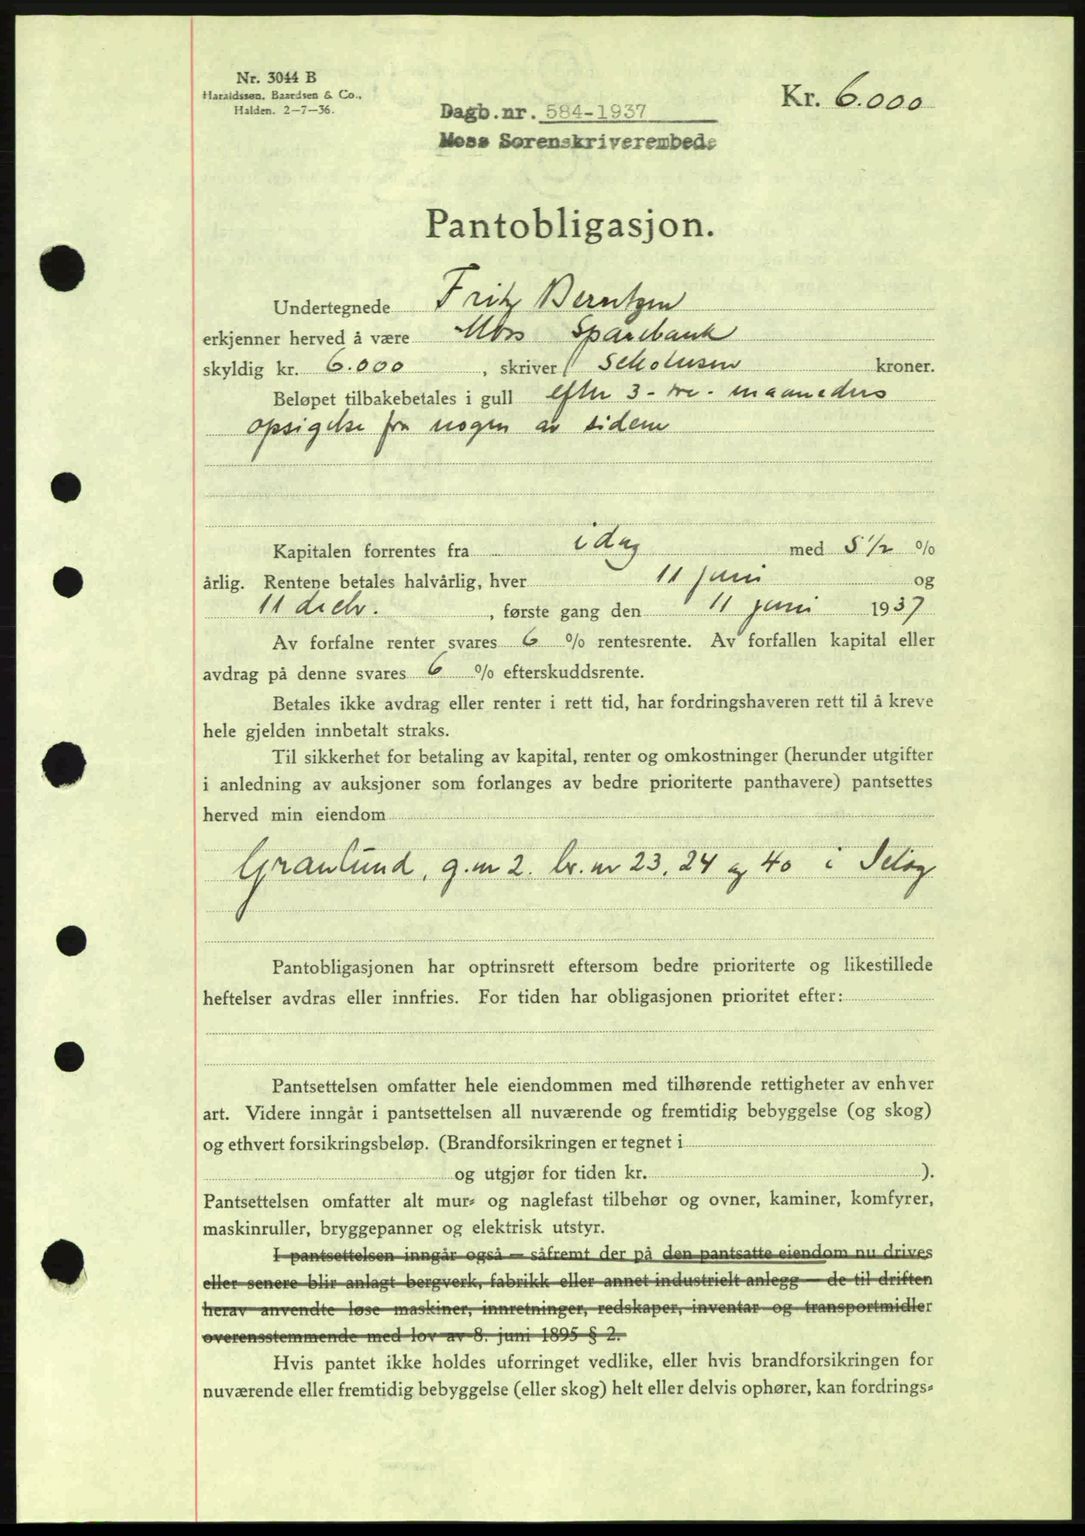 Nr. 3044 B
Haraldssen, Baardsen & Co.,
Halden. 2-7-36.
Kr. 6.000
Dagb.nr. 584-1937
Moss Sorenskriverembede
Pantobligasjon.
Undertegnede Fritz Berntzen
erkjenner herved å være Moss Sparebank
skyldig kr. 6.000, skriver kroner.
Beløpet tilbakebetales i gull efter 3 - tre - maaneders
opsigelse fra nogen av sidene
Kapitalen forrentes fra idag med 5 1/2 %
årlig. Rentene betales halvårlig, hver 11 juni og
11 decbr., første gang den 11 juni 1937
Av forfalne renter svares 6 % rentesrente. Av forfallen kapital eller
avdrag på denne svares 6 % efterskuddsrente.
Betales ikke avdrag eller renter i rett tid, har fordringshaveren rett til å kreve
hele gjelden innbetalt straks.
Til sikkerhet for betaling av kapital, renter og omkostninger (herunder utgifter
i anledning av auksjoner som forlanges av bedre prioriterte panthavere) pantsettes
herved min eiendom
Granlund, g.nr 2. br. nr 23, 24 og 40 i
Pantobligasjonen har optrinsrett eftersom bedre prioriterte og likestillede
heftelser avdras eller innfries. For tiden har obligasjonen prioritet efter:
Pantsettelsen omfatter hele eiendommen med tilhørende rettigheter av enhver
art. Videre inngår i pantsettelsen all nuværende og fremtidig bebyggelse (og skog)
og ethvert forsikringsbeløp. (Brandforsikringen er tegnet i
og utgjør for tiden kr. ).
Pantsettelsen omfatter alt mur- og naglefast tilbehør og ovner, kaminer, komfyrer,
maskinruller, bryggepanner og elektrisk utstyr.
I pantsettelsen inngår også — såfremt der på den pantsatte eiendom nu drives
eller senere blir anlagt bergverk, fabrikk eller annet industrielt anlegg — de til driften
herav anvendte løse maskiner, innretninger, redskaper, inventar og transportmidler
overensstemmende med lov av 8. juni 1895 § 2.
Hvis pantet ikke holdes uforringet vedlike, eller hvis brandforsikringen for
nuværende eller fremtidig bebyggelse (eller skog) helt eller delvis ophører, kan fordrings-